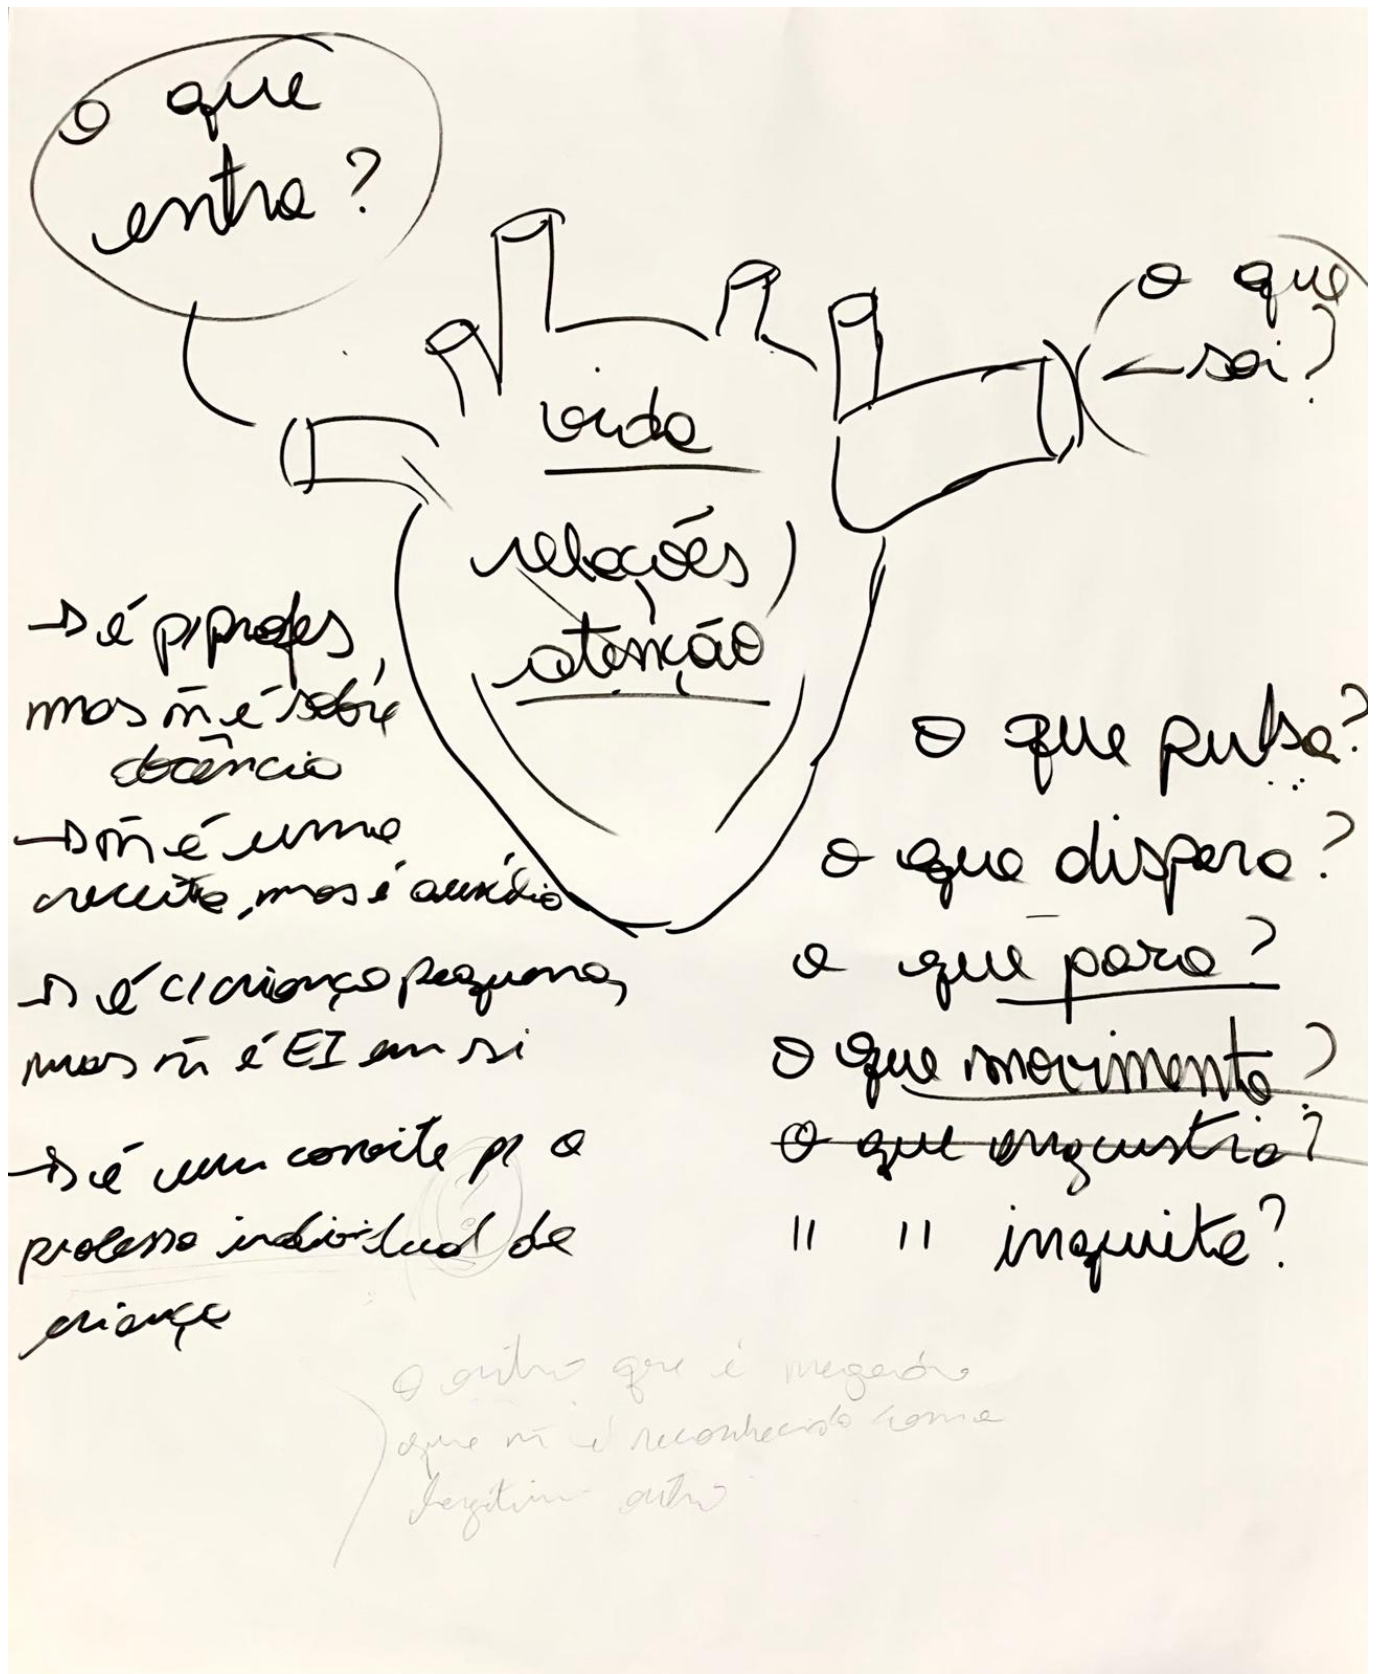 o que
entra?
o que
sai?
vida
relações
atenção
→ é p/ profes,
mas ñ é sobre
docência
→ ñ é uma
receita, mas é auxílio
→ é c/ criança pequena,
mas ñ é EI em si
→ é um convite p/ o
processo individual da
criança
o que pulsa?
o que dispara?
o que para?
o que movimenta?
o que angustia?
" " inquieta?
o outro que é negado
que ñ é reconhecido como
legítimo outro